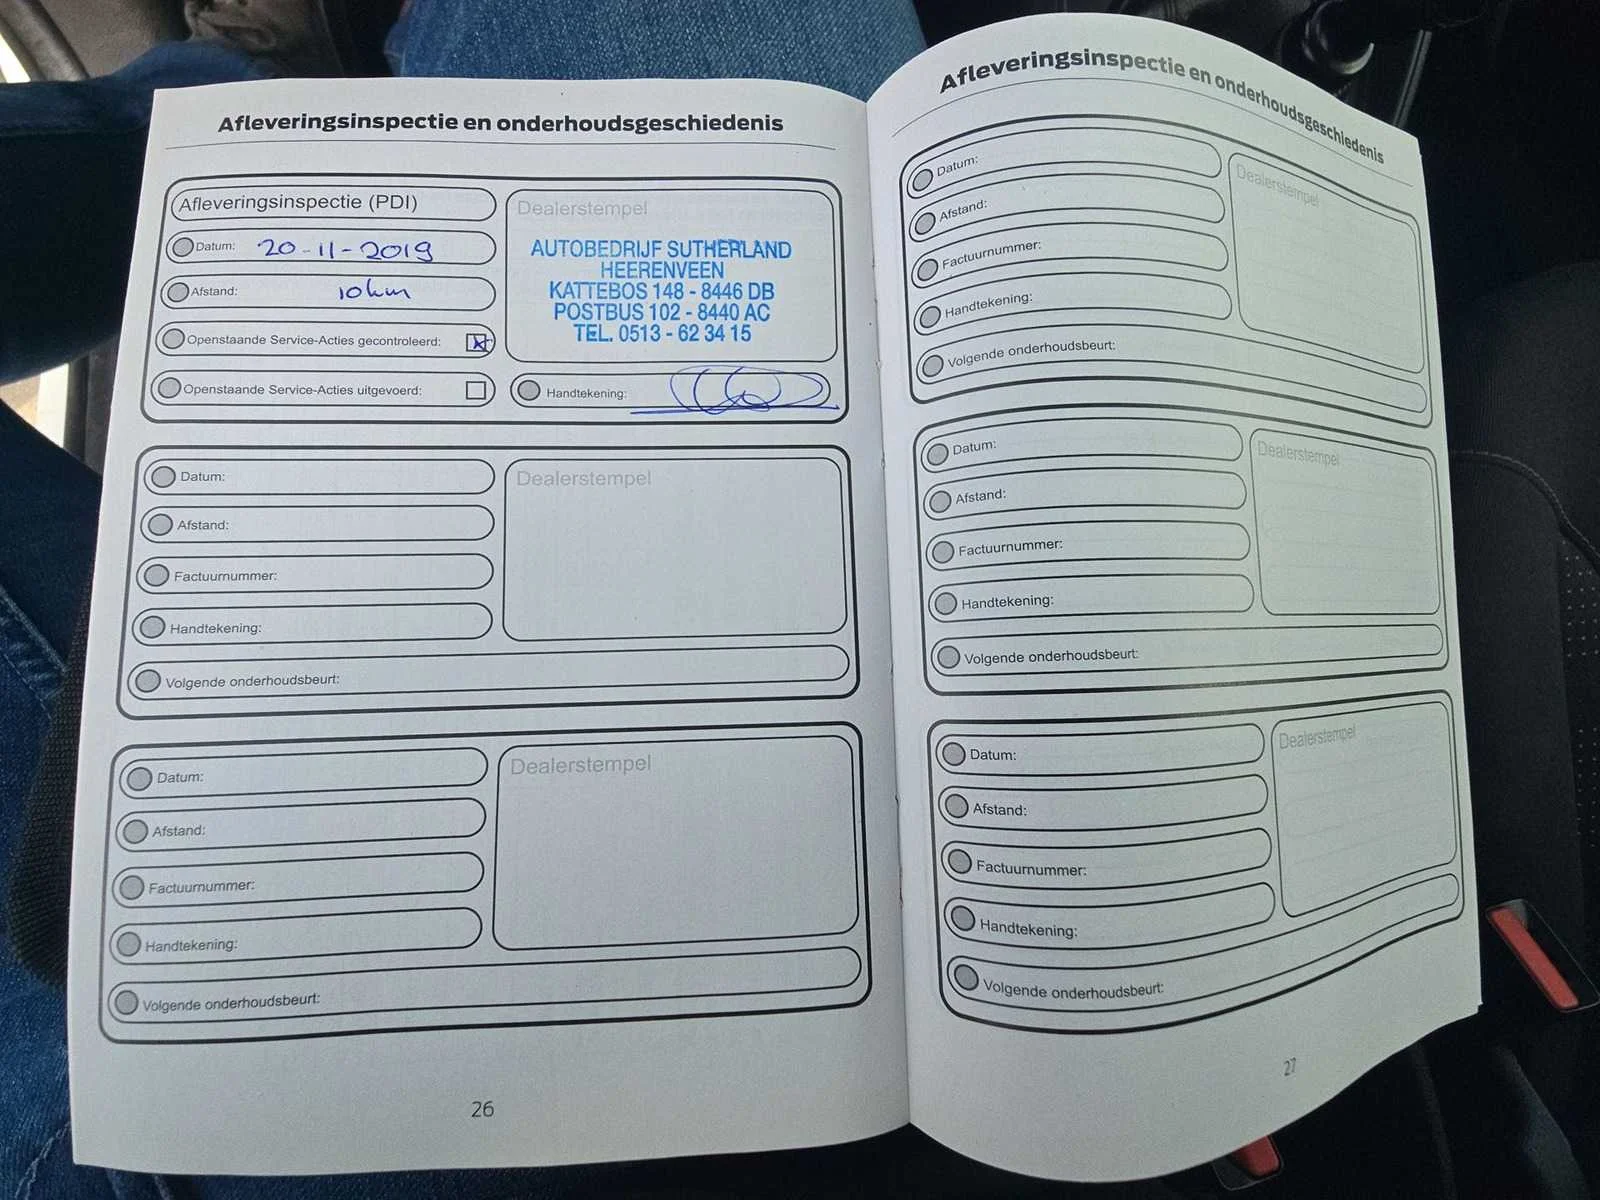 Afleveringsinspectie en onderhoudsgeschiedenis
Afleveringsinspectie (PDI)
Datum: 20-11-2019
Afstand: 10km
Openstaande Service-Acties gecontroleerd:
Openstaande Service-Acties uitgevoerd:
Dealerstempel
AUTOBEDRIJF SUTHERLAND
HEERENVEEN
KATTEBOS 148 - 8446 DB
POSTBUS 102 - 8440 AC
TEL. 0513 - 62 34 15
Handtekening:
Datum:
Afstand:
Factuurnummer:
Handtekening:
Volgende onderhoudsbeurt:
Dealerstempel
Datum:
Afstand:
Factuurnummer:
Handtekening:
Volgende onderhoudsbeurt:
Dealerstempel
26
Afleveringsinspectie en onderhoudsgeschiedenis
Datum:
Afstand:
Factuurnummer:
Handtekening:
Volgende onderhoudsbeurt:
Dealerstempel
Datum:
Afstand:
Factuurnummer:
Handtekening:
Volgende onderhoudsbeurt:
Dealerstempel
Datum:
Afstand:
Factuurnummer:
Handtekening:
Volgende onderhoudsbeurt:
Dealerstempel
27